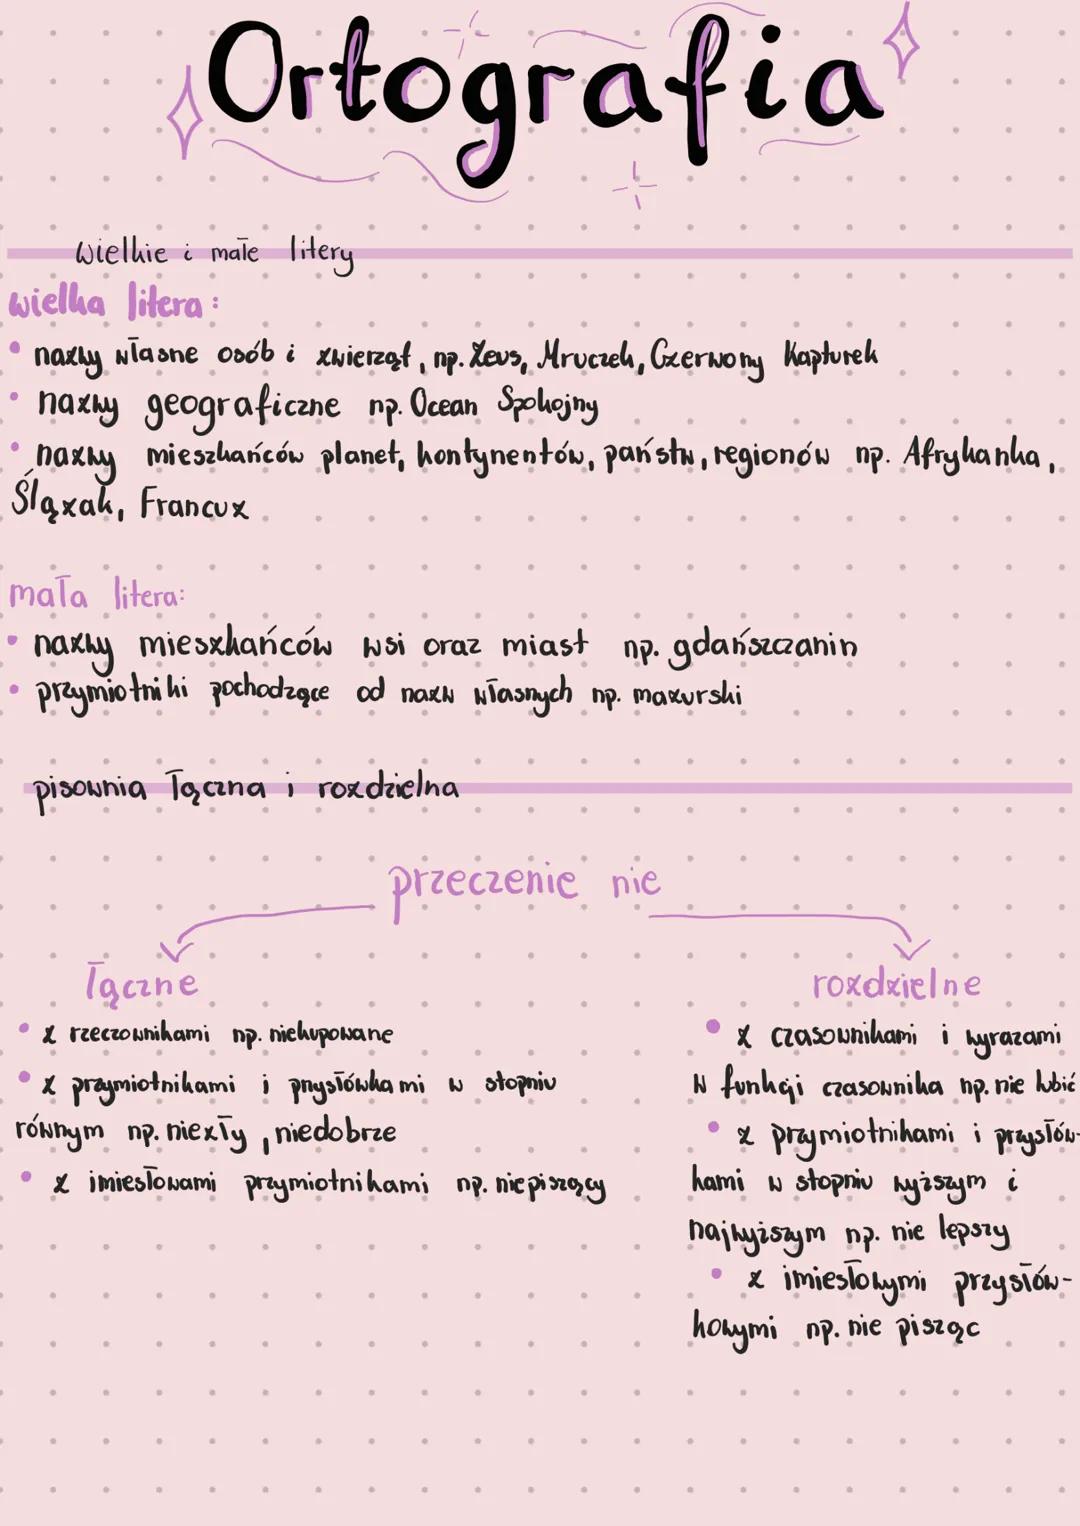 Ortografia
wielkie i małe litery
wielka litera:
• nazwy własne osób i zwierząt, np. Zeus, Mruczek, Czerwony Kapturek
• nazwy geograficzne np. Ocean Spokojny
• nazwy mieszkańców planet, kontynentów, państw, regionów np. Afrykanka,
Ślązak, Francuz
mała litera:
• nazwy mieszkańców wsi oraz miast np. gdańszczanin
• przymiotniki pochodzące od nazw własnych np. mazurski
pisownia łączna i rozdzielna
przeczenie nie
łączne
• z rzeczownikami np. niekupowane
• z przymiotnikami i przysłówkami w stopniu
równym np. niezły, niedobrze
• z imiesłowami przymiotnikami np. niepiszący
rozdzielne
• z czasownikami i wyrazami
w funkcji czasownika np. nie lubić
• z przymiotnikami i przysłów-
kami w stopniu wyższym i
najwyższym np. nie lepszy
• z imiesłowymi przysłów-
kowymi np. nie pisząc